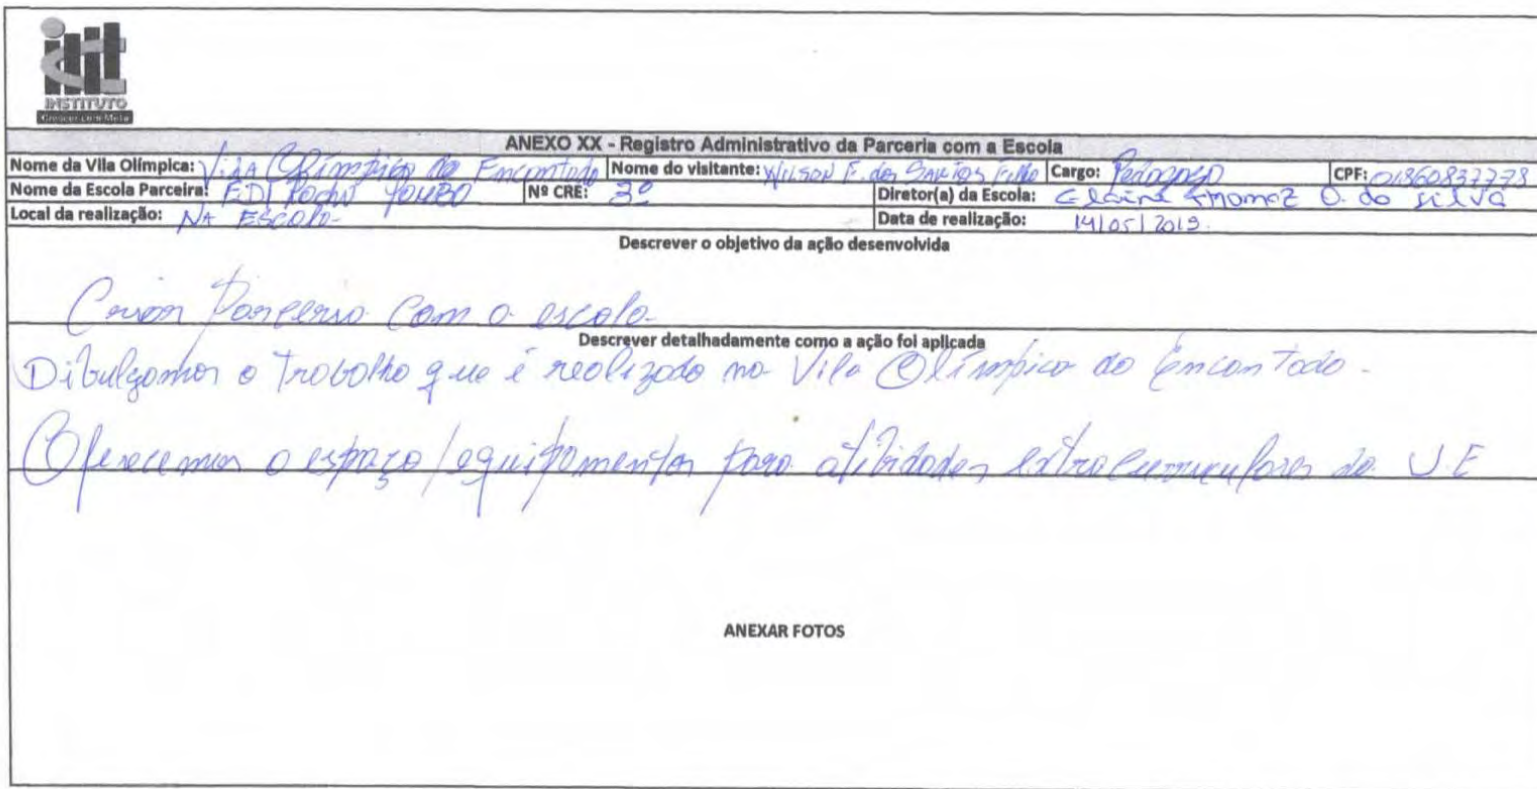 INSTITUTO
Crescer com Meta
ANEXO XX - Registro Administrativo da Parceria com a Escola
Nome da Vila Olímpica: Vila Olímpica do Encantado Nome do visitante: Wilson F. dos Santos Filho Cargo: Pedagogo CPF: 01360837778
Nome da Escola Parceira: EDI Nº CRE: 3º Diretor(a) da Escola: Elaine Thomaz O. da Silva
Local da realização: NA ESCOLA Data de realização: 14/05/2019.
Descrever o objetivo da ação desenvolvida
Criar Parceria com a escola
Descrever detalhadamente como a ação foi aplicada
Dibulgamos o Trabalho que é realizado na Vila Olímpica do Encantado.
Oferecemos o espaço/equipamentos para atibidades extracurriculares da U.E
ANEXAR FOTOS